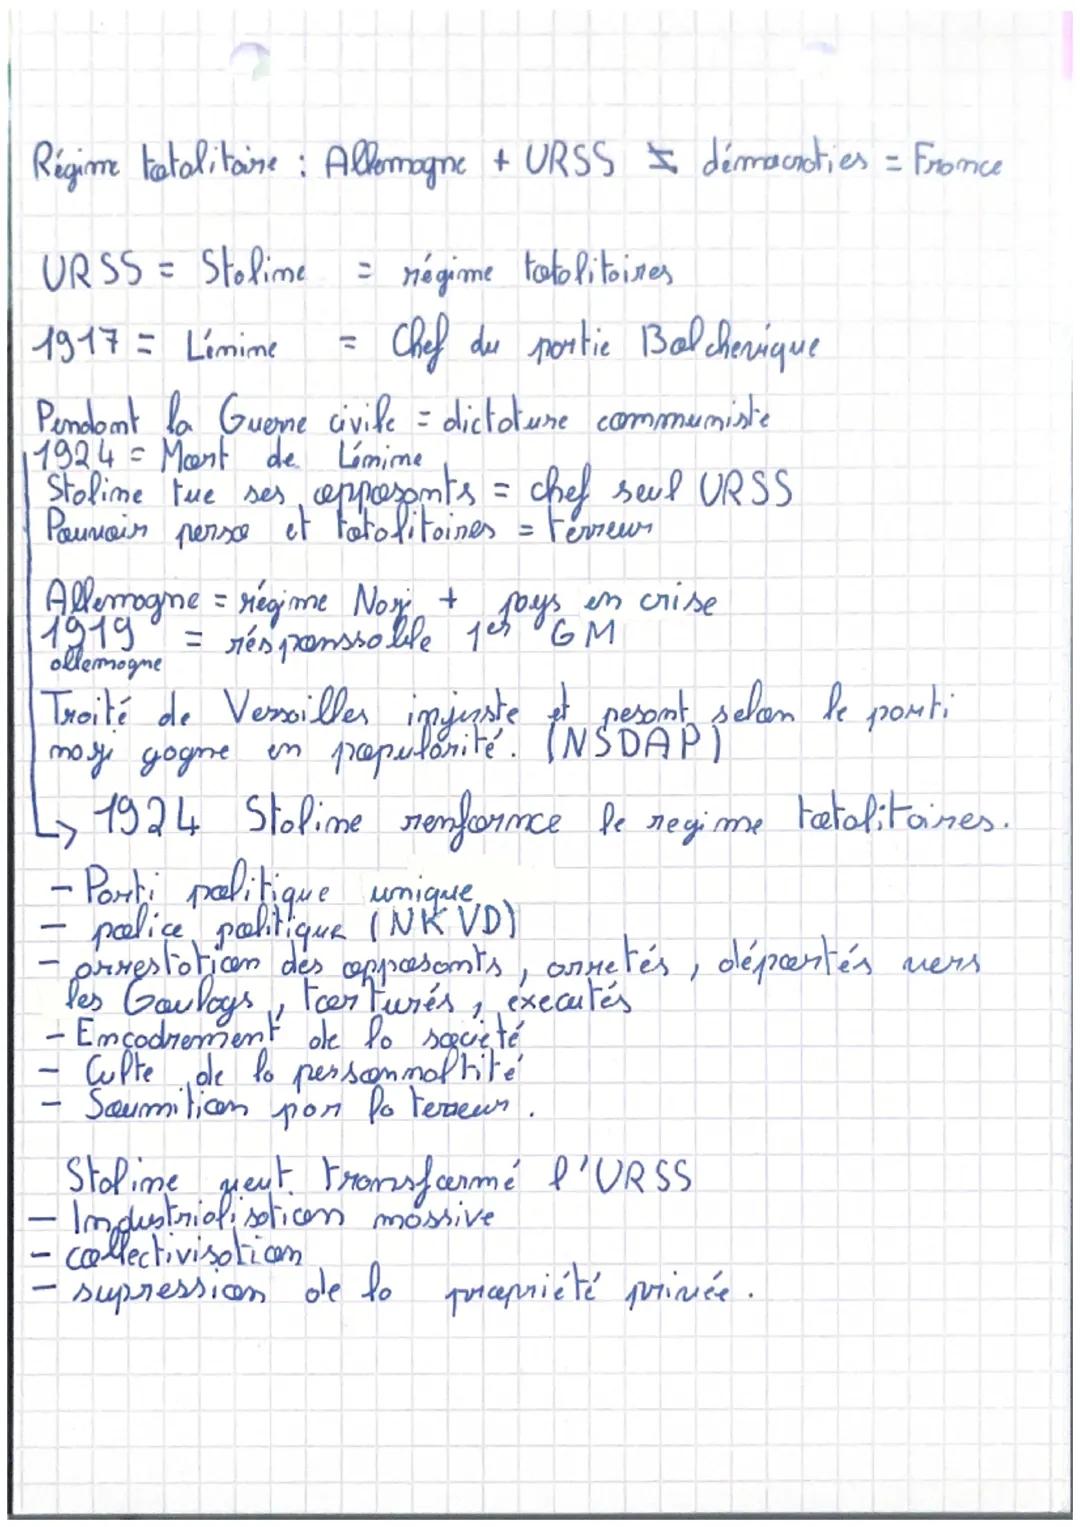 Régime totalitaire : Allemagne + URSS ≠ démocraties = France
URSS = Staline = régime totalitaires
1917 = Lénine = Chef du partie Bolchevique
Pendant la Guerre civile = dictature communiste
1924 = Mort de Lénine
Staline tue ses opposants = chef seul URSS
Pouvoir perso et totalitaires = terreur
Allemagne = régime Nazi + pays en crise
1919 = résponssable 1er GM
allemagne
Traité de Versailles injuste et pesant selon le parti
nazi gagne en popularité. (NSDAP)
↳ 1924 Staline renfornce le regime totalitaires.
- Parti politique unique
- police politique (NKVD)
- arrestation des opposants, arretés, déportés vers
les Goulags, torturés, éxecutés
- Encadrement de la société
- Culte de la personnaltité
- Soumition par la terreur.
Staline veut transformé l'URSS
- Industrialisation massive
- collectivisation
- supression de la propriété privée.